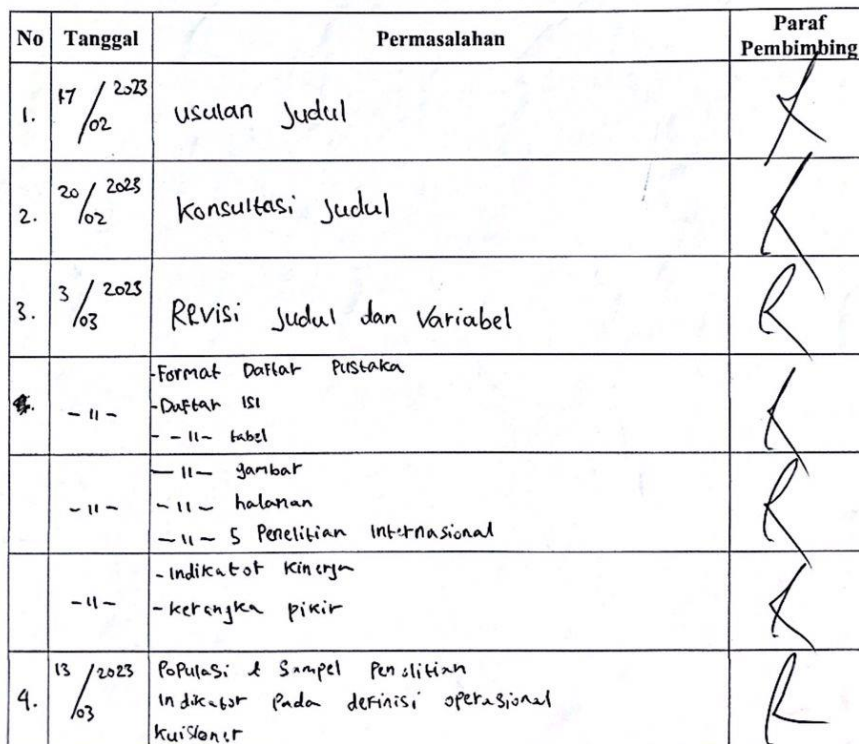 No Tanggal Permasalahan Paraf Pembimbing
1. 17/02 2023 Usulan Judul
2. 20/02 2023 Konsultasi Judul
3. 3/03 2023 Revisi Judul dan Variabel
4. - 11 - - Format Daftar Pustaka
- Daftar Isi
- - 11 - tabel
- 11 - - 11 - gambar
- 11 - halaman
- 11 - 5 Penelitian Internasional
- 11 - - Indikator Kinerja
- kerangka pikir
4. 13/03 2023 Populasi & Sampel Penelitian
Indikator Pada definisi operasional
Kuisioner